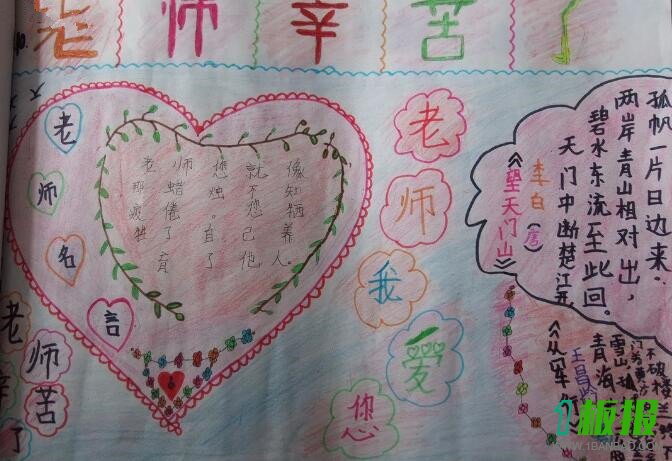 老师辛苦了
老师名言
老师您就像
那蜡烛。不知
疲倦。您牺
牲了自己养
育了他人。
老师我爱您
老师辛苦了
《望天门山》
李白（唐）
天门中断楚江开
碧水东流至此回。
两岸青山相对出，
孤帆一片日边来.
《从军
王昌
青海
雪山
不破楼
1板报
WWW.1BANBAO.COM